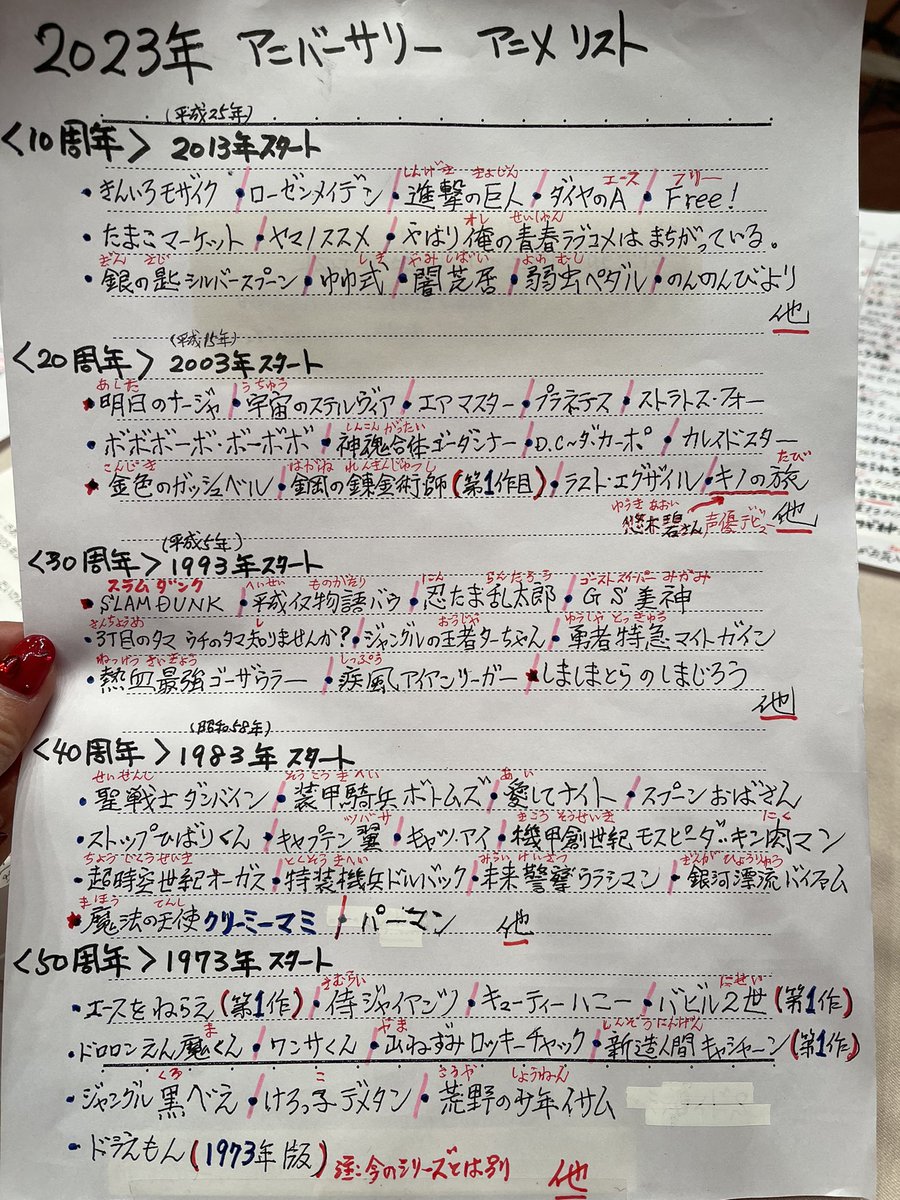 2023年 アニバーサリー アニメリスト
(平成25年)
<10周年> 2013年スタート
しんげき きょじん エース フリー
・きんいろモザイク/・ローゼンメイデン/・進撃の巨人/・ダイヤのA/・Free!
オレ せいしゅん
・たまこマーケット/・ヤマノススメ/・やはり俺の青春ラブコメはまちがっている。
ぎん さじ しき やみ しばい よわ むし
・銀の匙シルバースプーン/・ゆゆ式/・闇芝居/・弱虫ペダル/・のんのんびより
他
(平成15年)
<20周年> 2003年スタート
あした うちゅう
・明日のナージャ/・宇宙のステルヴィア/・エアマスター/・プラネテス/・ストラトス・フォー
しんこん がったい
・ボボボーボ・ボーボボ/・神魂合体ゴーダンナー/・D.C~ダ・カーポ/・カレイドスター
こんじき はがね れんきんじゅつし たび
・金色のガッシュベル/・鋼の錬金術師(第1作目)/・ラスト・エグザイル/・キノの旅
ゆうき あおい
悠木碧さん声優デビュー 他
(平成5年)
<30周年> 1993年スタート
スラム ダンク へいせい ものがたり にん らんたろう ゴーストスイーパー みかみ
・SLAM DUNK/・平成イヌ物語バウ/・忍たま乱太郎/・GS美神
さんちょうめ し おうじゃ ゆうしゃ とっきゅう
・3丁目のタマ ウチのタマ知りませんか?/・ジャングルの王者ターちゃん/・勇者特急マイトガイン
ねっけつ さいきょう しっぷう
・熱血最強ゴーザウラー/・疾風アイアンリーガー/・しましまとらのしまじろう
他
(昭和58年)
<40周年> 1983年スタート
せいせんし そうこう きへい あい
・聖戦士ダンバイン/・装甲騎兵ボトムズ/・愛してナイト/・スプーンおばさん
ツバサ きこう そうせいき にく
・ストップひばりくん/・キャプテン翼/・キャッツ・アイ/・機甲創世紀モスピーダ/・キン肉マン
ちょうじくうせいき とくそう きへい みらい けいさつ ぎんがひょうりゅう
・超時空世紀オーガス/・特装機兵ドルバック/・未来警察ウラシマン/・銀河漂流バイファム
まほう てんし
・魔法の天使クリーミーマミ/・パーマン 他
<50周年> 1973年スタート
さむらい にせい
・エースをねらえ(第1作)/・侍ジャイアンツ/・キューティーハニー/・バビル2世(第1作)
ま やま しんぞうにんげん
・ドロロンえん魔くん/・ワンサくん/・山ねずみロッキーチャック/・新造人間キャシャーン(第1作)
くろ こ こうや しょうねん
・ジャングル黒べえ/・けろっ子デメタン/・荒野の少年イサム
・ドラえもん(1973年版) 注:今のシリーズとは別 他